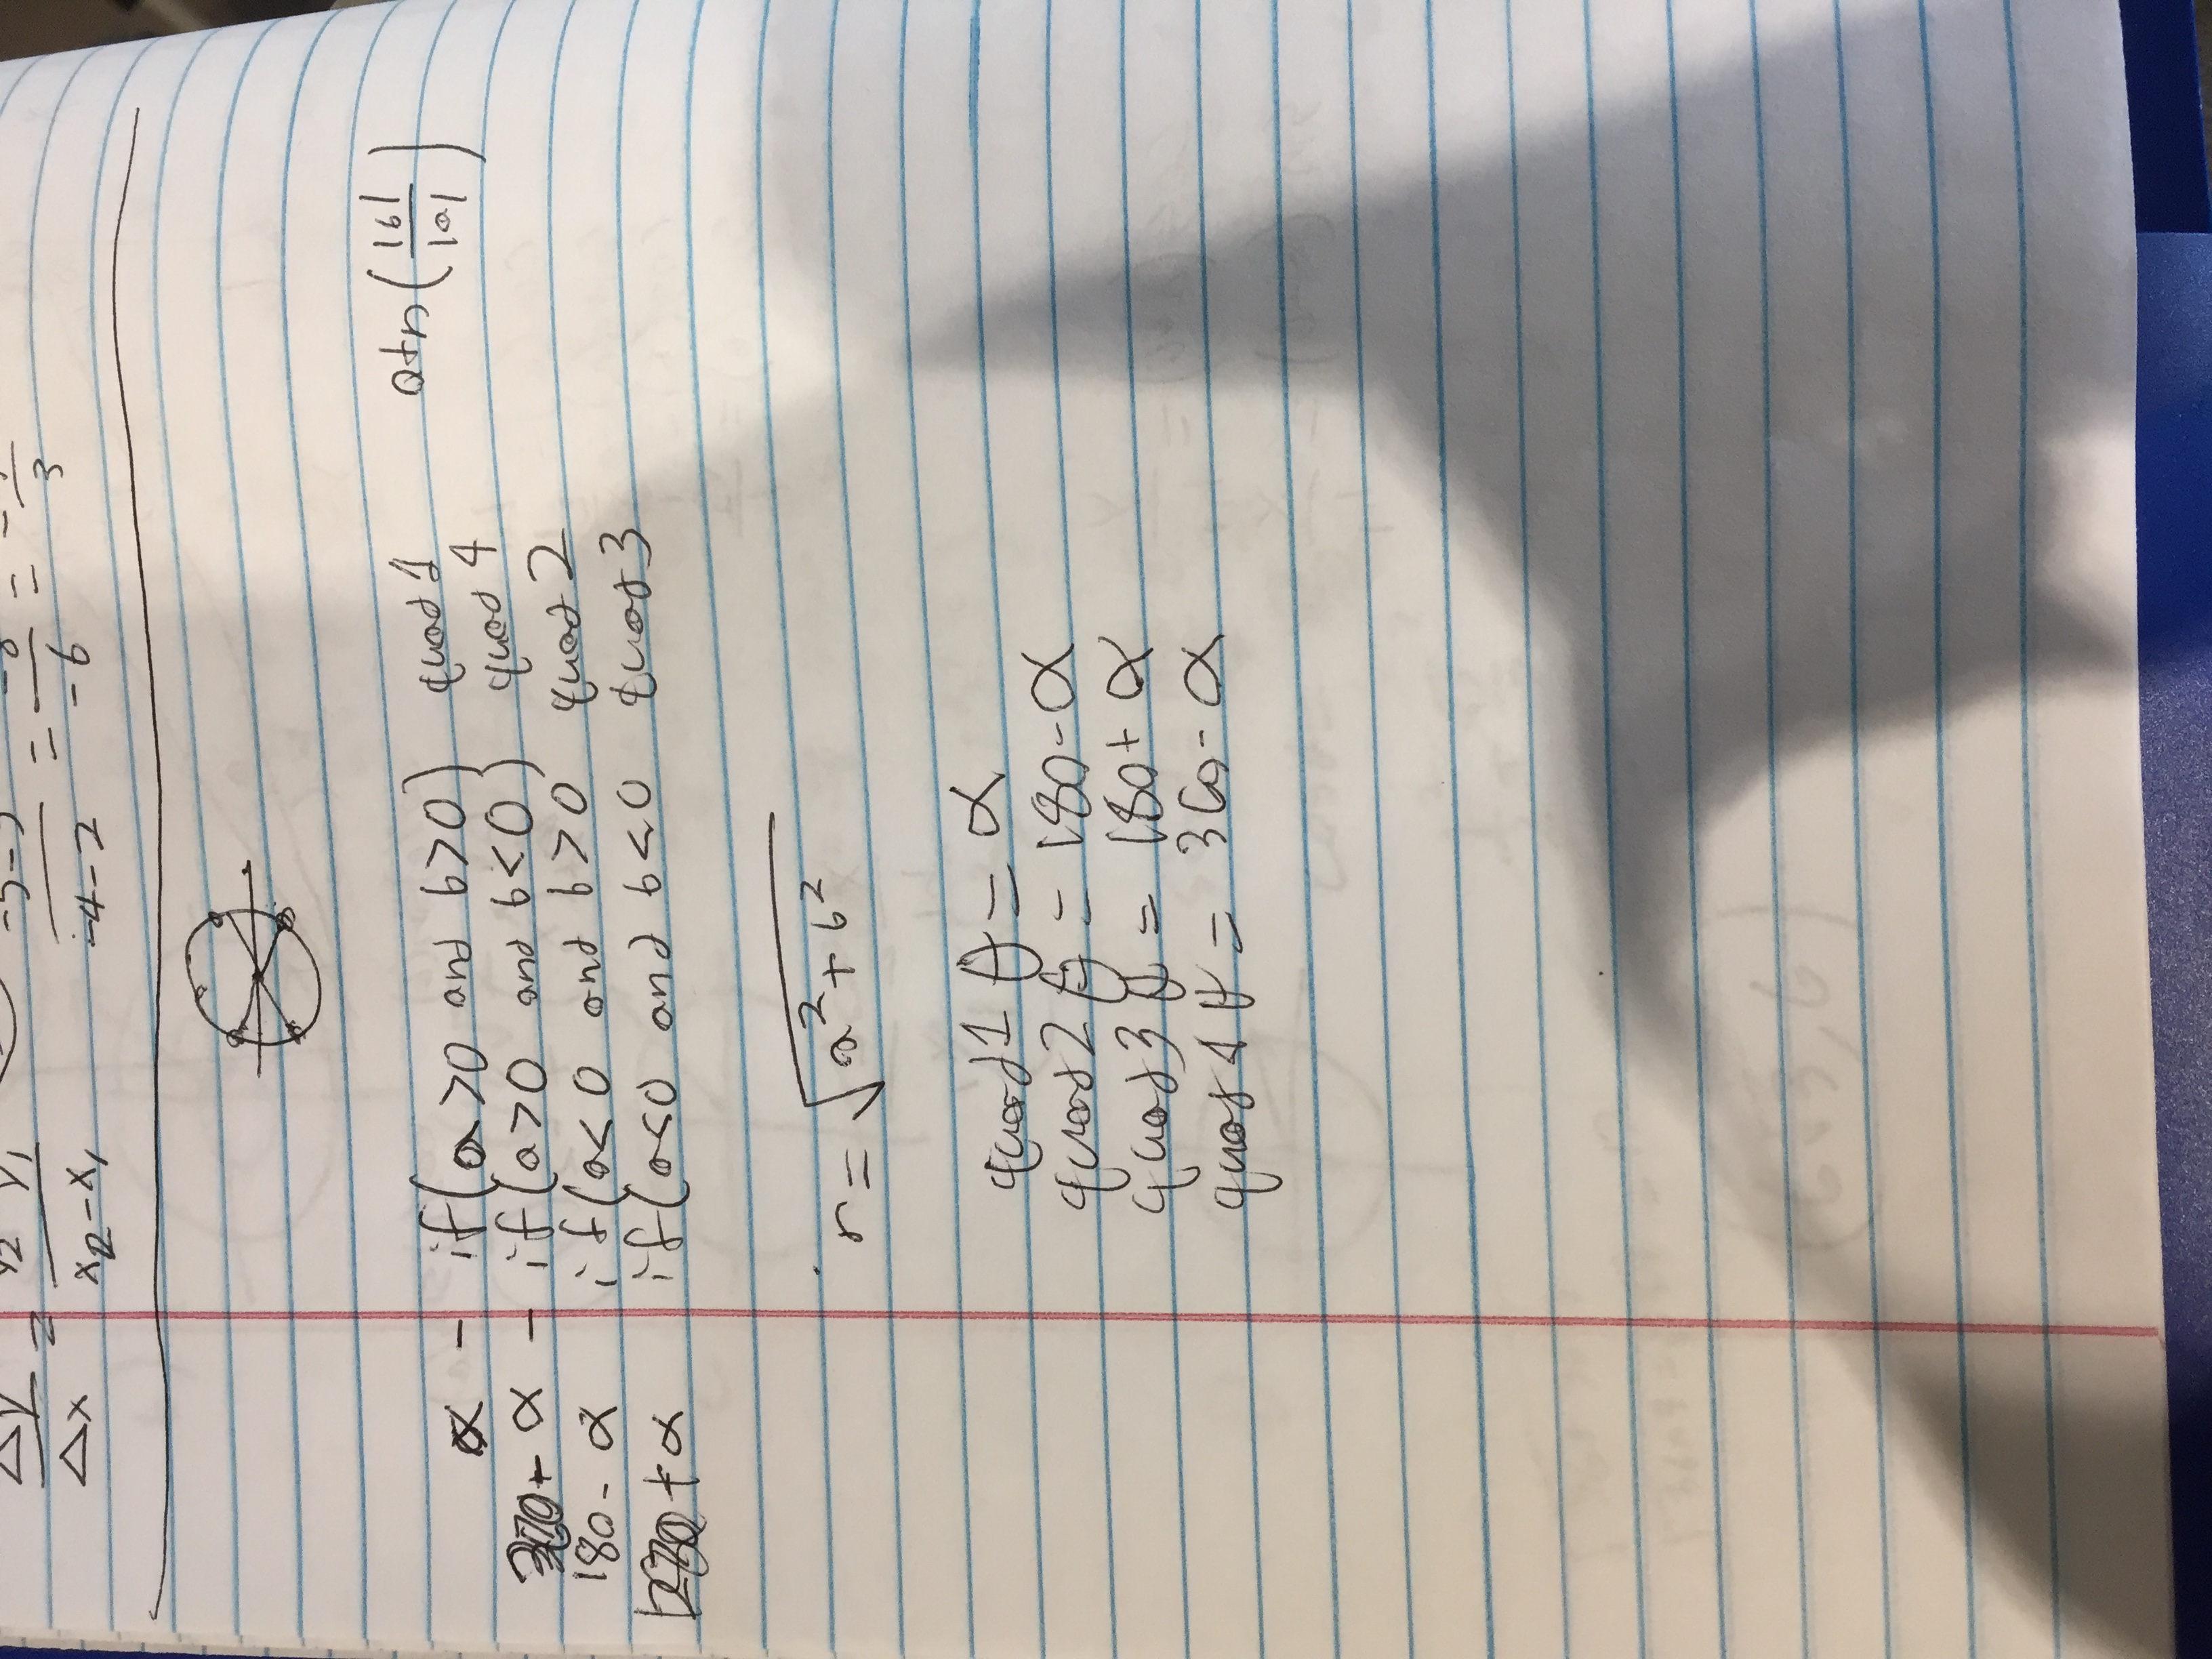 Δy/Δx = y2 - y1/x2-x1 /-4-2 = /-6 = - /3
α - if(a>0 and b>0) quad 1 atn(|b|/|a|)
α - if(a>0 and b<0) quad 4
180- α if(a<0 and b>0 quad 2
+ α if(a<0 and b<0 quad 3
r = √a²+b²
quad 1 θ = α
quad 2 θ = 180-α
quad 3 θ = 180+ α
quad 4 θ = 360- α